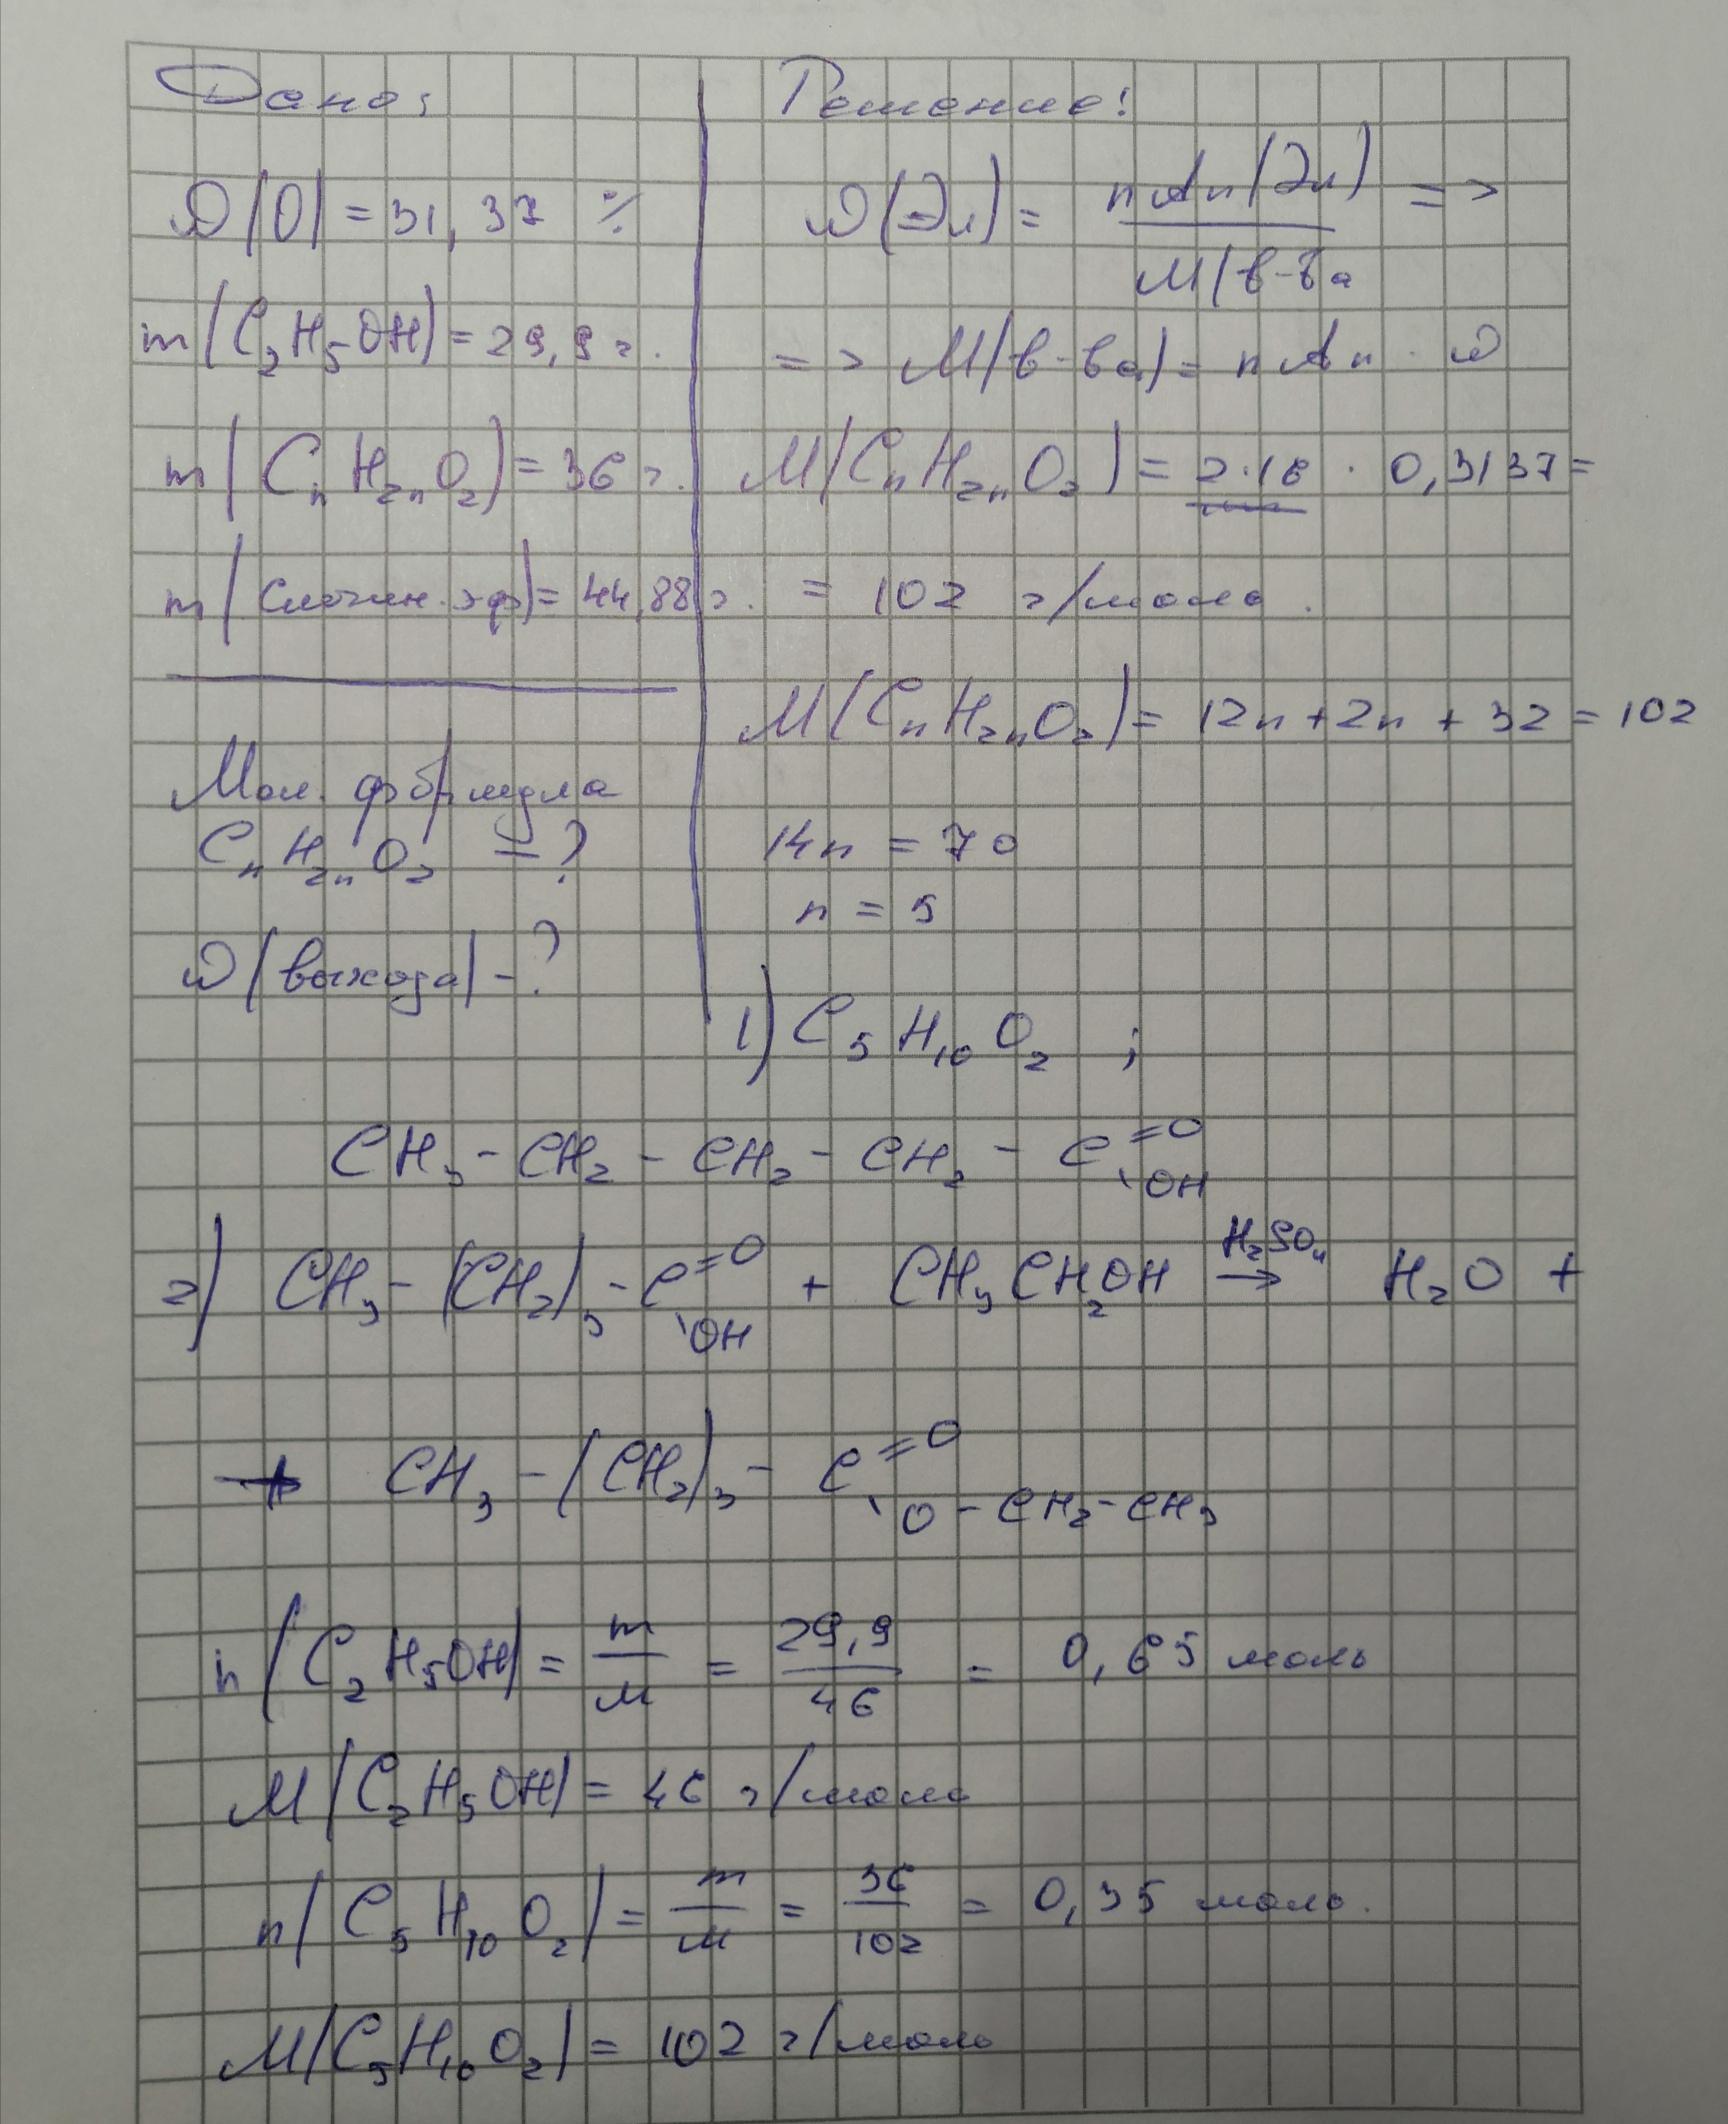 Дано:
ω(O) = 31,37 %
m(C₂H₅OH) = 29,9 г.
m(CₙH₂ₙO₂) = 36 г.
m(сложн. эф) = 44,88 г.
Мол. формула
CₙH₂ₙO₂ = ?
ω(выхода) - ?
Решение:
ω(Эл) = nAr(Эл) / M(в-ва =>
=> M(в-ва) = nAr · ω
M(CₙH₂ₙO₂) = 2·16 · 0,3137 =
= 102 г/моль.
M(CₙH₂ₙO₂) = 12n + 2n + 32 = 102
14n = 70
n = 5
1) C₅H₁₀O₂ ;
CH₃ - CH₂ - CH₂ - CH₂ - C =O \OH
2) CH₃ - (CH₂)₃ - C =O \OH + CH₃CH₂OH →(H₂SO₄) H₂O +
+ CH₃ - (CH₂)₃ - C =O \O - CH₂ - CH₃
n(C₂H₅OH) = m/M = 29,9/46 = 0,65 моль
M(C₂H₅OH) = 46 г/моль
n(C₅H₁₀O₂) = m/M = 36/102 = 0,35 моль.
M(C₅H₁₀O₂) = 102 г/моль